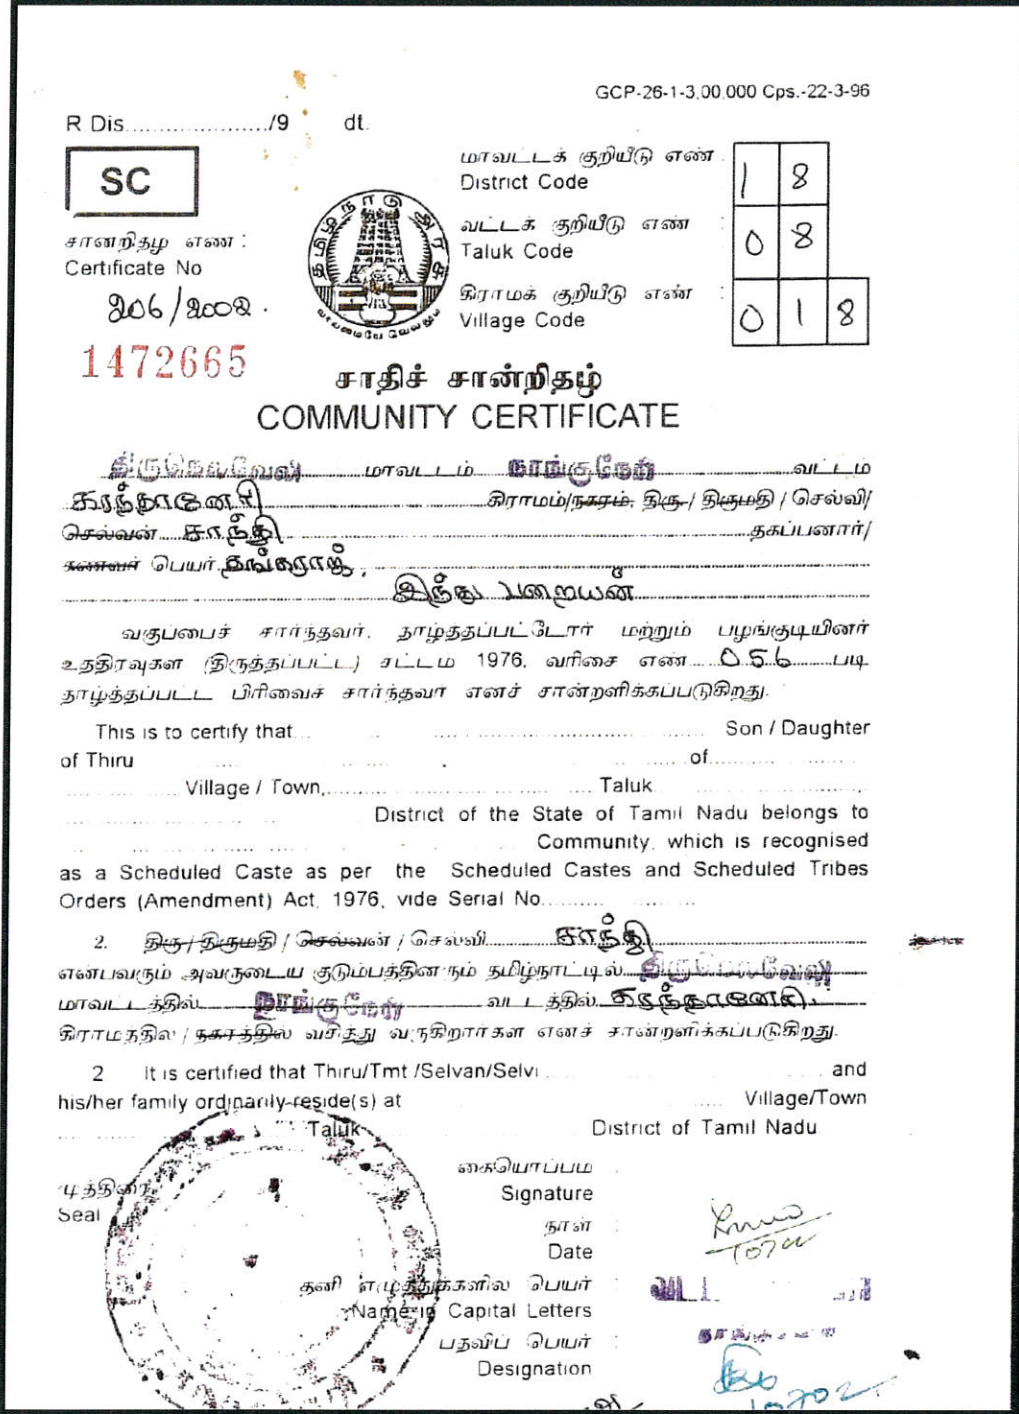 GCP-26-1-3,00,000 Cps.-22-3-96
R Dis...................../9 dt.
SC
மாவட்டக் குறியீடு எண் :
District Code
1 8
சான்றிதழ் எண் :
Certificate No
206/2002.
1472665
தமிழ்நாடு அரசு
வாய்மையே வெல்லும்
வட்டக் குறியீடு எண் :
Taluk Code
0 8
கிராமக் குறியீடு எண் :
Village Code
0 1 8
சாதிச் சான்றிதழ்
COMMUNITY CERTIFICATE
திருநெல்வேலி மாவட்டம் நாங்குநேரி வட்டம்
கரந்தானேரி கிராமம்/நகரம், திரு./ திருமதி / செல்வி/
செல்வன் சாந்தி தகப்பனார்/
கணவர் பெயர் தங்கராஜ்,
இந்து பறையன்
வகுப்பைச் சார்ந்தவர். தாழ்த்தப்பட்டோர் மற்றும் பழங்குடியினர்
உத்திரவுகள் (திருத்தப்பட்ட) சட்டம் 1976, வரிசை எண் 056 படி
தாழ்த்தப்பட்ட பிரிவைச் சார்ந்தவர் எனச் சான்றளிக்கப்படுகிறது.
This is to certify that Son / Daughter
of Thiru of
Village / Town, Taluk
District of the State of Tamil Nadu belongs to
Community, which is recognised
as a Scheduled Caste as per the Scheduled Castes and Scheduled Tribes
Orders (Amendment) Act, 1976, vide Serial No.
2. திரு/திருமதி / செல்வன் / செல்வி சாந்தி
என்பவரும் அவருடைய குடும்பத்தினரும் தமிழ்நாட்டில் திருநெல்வேலி
மாவட்டத்தில் நாங்குநேரி வட்டத்தில் கரந்தானேரி,
கிராமத்தில் / நகரத்தில் வசித்து வருகிறார்கள் எனச் சான்றளிக்கப்படுகிறது.
2 It is certified that Thiru/Tmt /Selvan/Selvi and
his/her family ordinarily reside(s) at Village/Town
Taluk District of Tamil Nadu
முத்திரை
Seal
கையொப்பம் :
Signature
நாள் :
Date
தனி எழுத்துக்களில் பெயர் :
Name in Capital Letters
பதவிப் பெயர் :
Designation